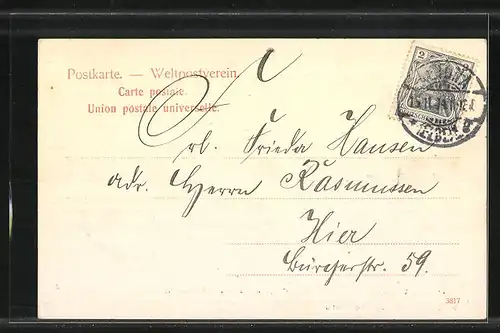 Postkarte. — Weltpostverein.
Carte postale.
Union postale universelle.
2
Frl. Frieda Hansen
adr. Herrn Rasmussen
Hier
Bürgerstr. 59.
3817